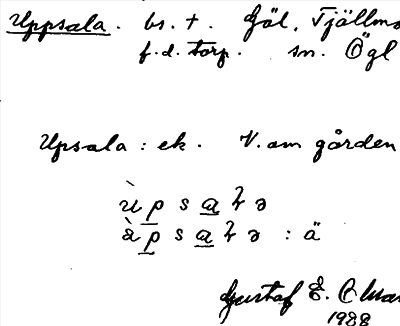 Uppsala. bs. t. Gäl, Tjällmo
f. d. torp. sn. Ögl
Upsala : ek. V. om gården
ù p s a ɫ ə
à p s a ɫ ə : ä
Gustaf E.
1988